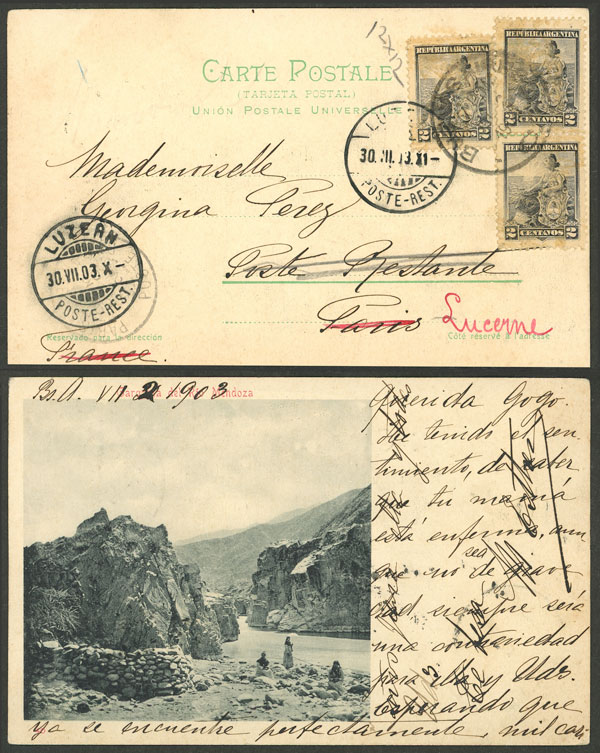 12X12
CARTE POSTALE
(TARJETA POSTAL)
UNIÓN POSTALE UNIVERSELLE
REPÚBLICA ARGENTINA
2 CENTAVOS 2
REPÚBLICA ARGENTINA
2 CENTAVOS 2
REPÚBLICA ARGENTINA
2 CENTAVOS 2
30.VII.03.XI-
POSTE-REST.
Mademoiselle
Georgina Perez
Poste Restante
Paris Lucerne
France.
LUZERN
30.VII.03.X-
POSTE-REST.
Reservado para la dirección
Côté réservé à l'adresse
Bs.A. VII 2 903
del Río Mendoza
Querida Gogo.
He tenido el sen-
timiento, de saber
que tu mamá
está enferma, aun
que no sea de grave
dad siempre será
una contrariedad
para ella y Uds.
Esperando que
ya se encuentre perfectamente, mil cari-